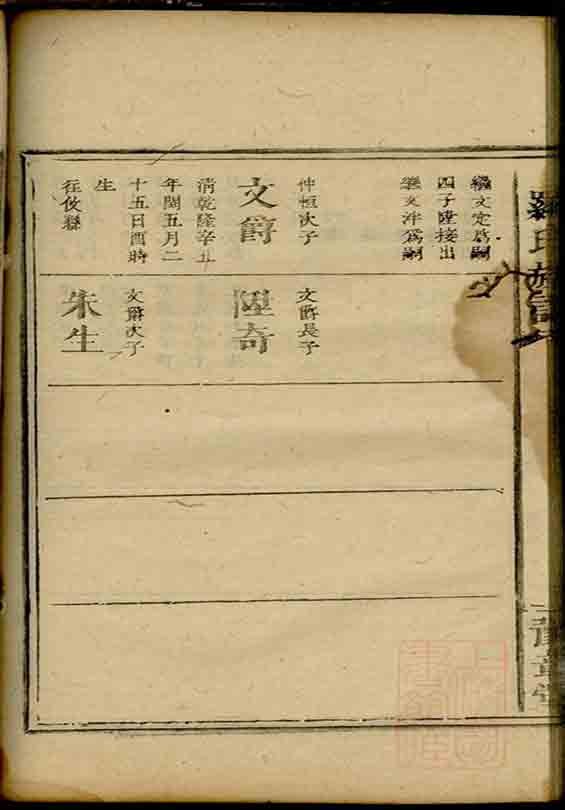 羅氏族譜
豫章堂
繼文定爲嗣
四子陞接出
繼文泮爲嗣
仲恒次子
文爵
清乾隆辛丑
年閏五月二
十五日酉時
生
往攸縣
文爵長子
陞奇
文爵次子
朱生